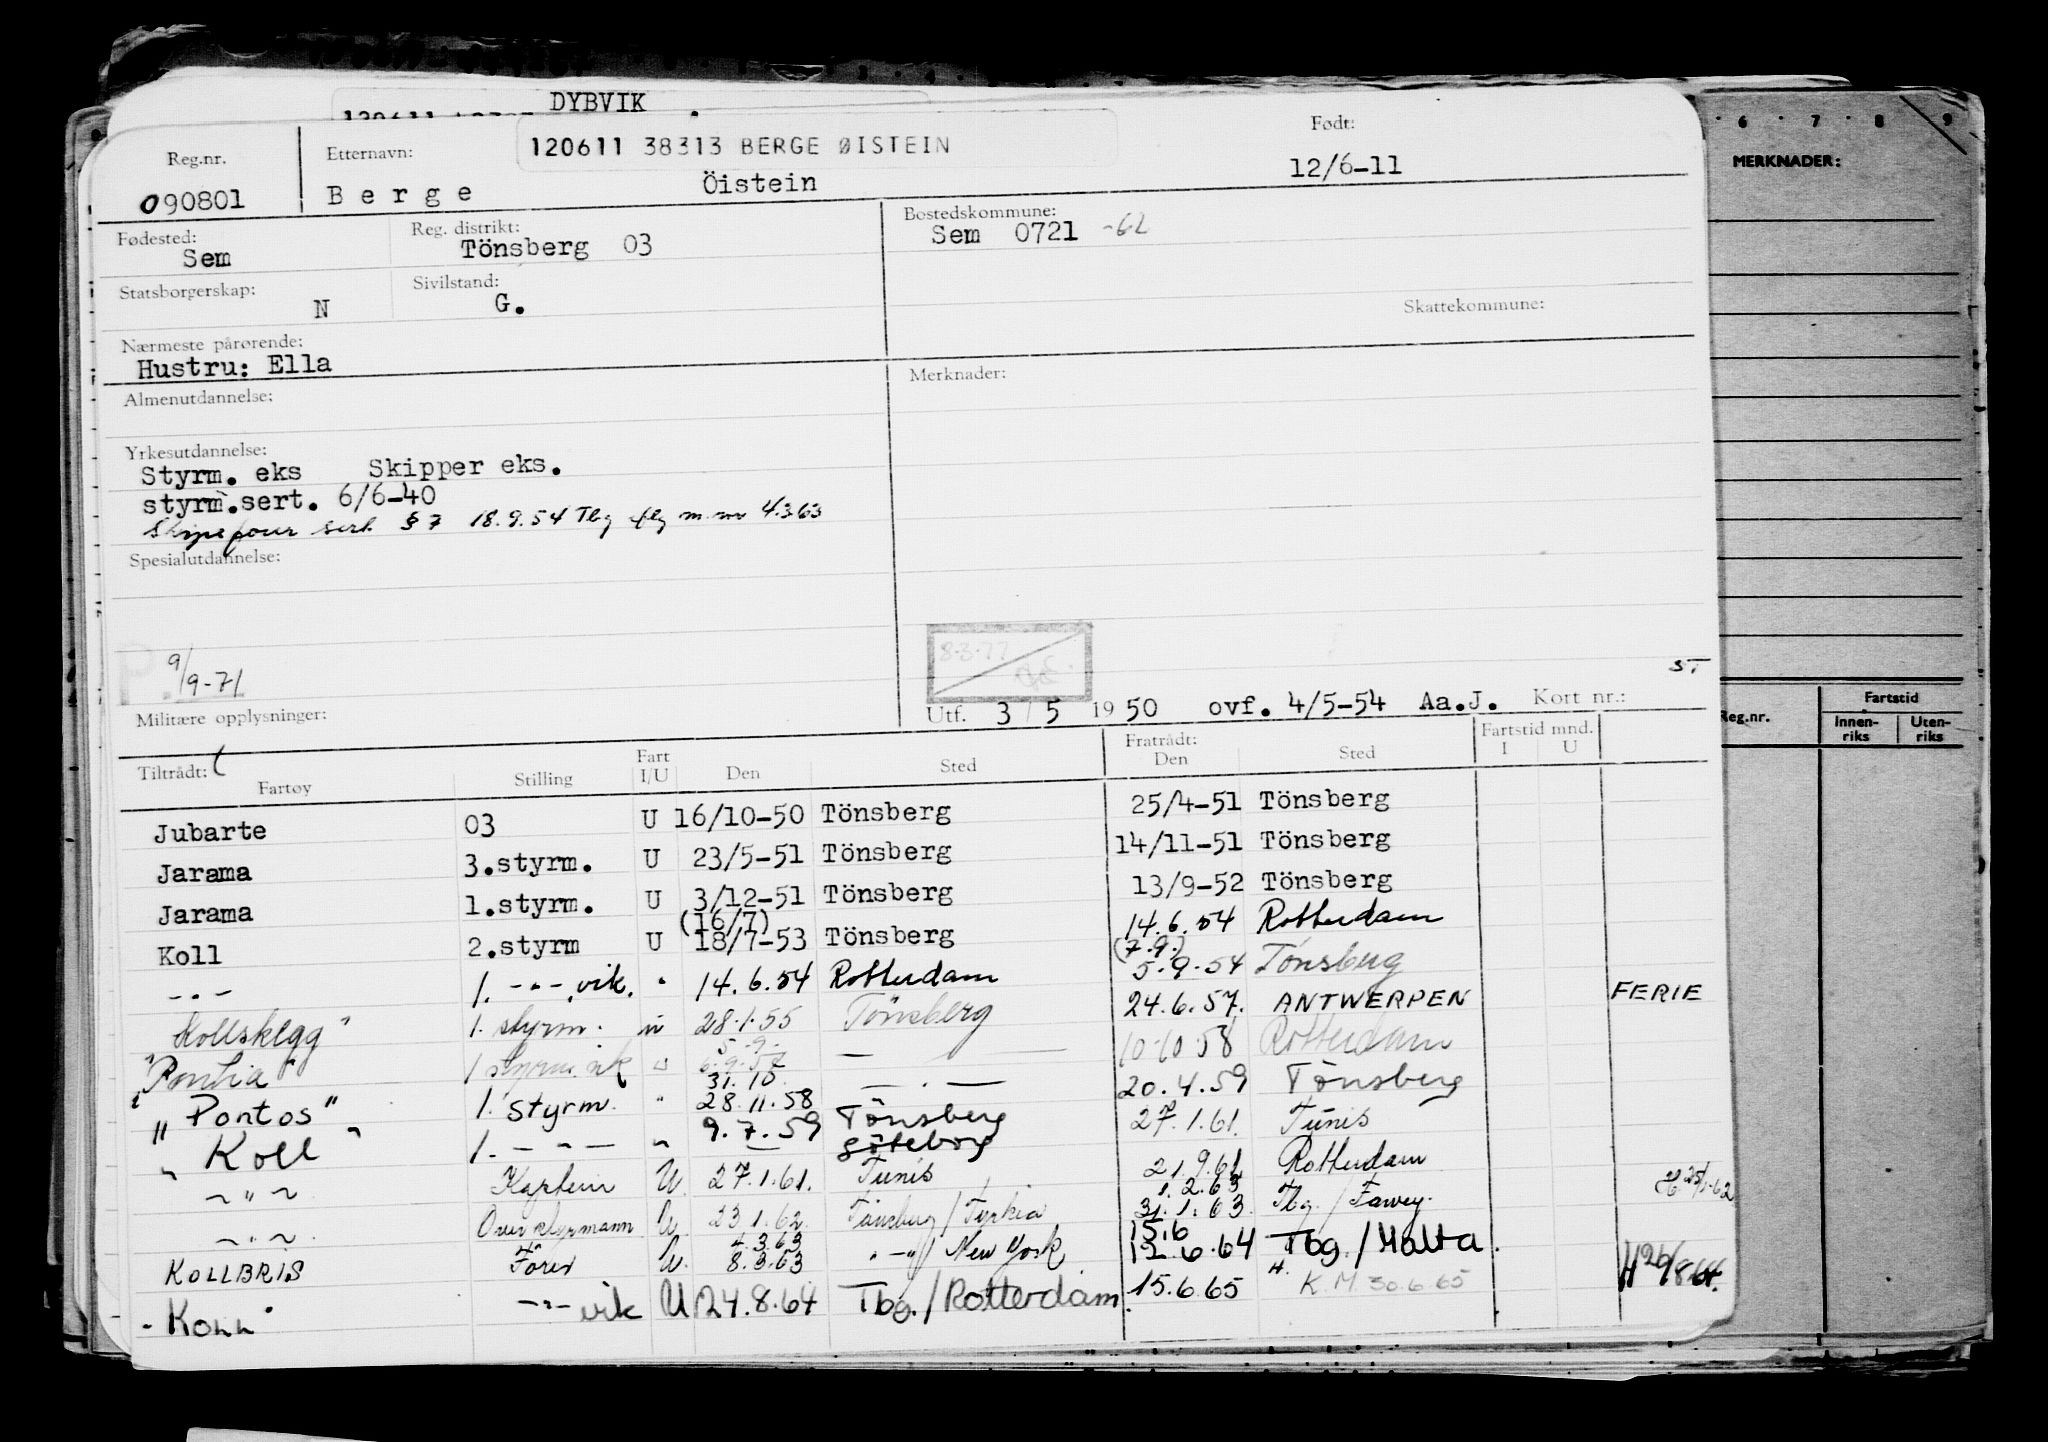 DYBVIK
Reg.nr. Etternavn: 120611 38313 BERGE ØISTEIN Født:
090801 Berge Öistein 12/6-11
Fødested: Reg. distrikt: Bostedskommune:
Sem Tönsberg 03 Sem 0721 -62
Statsborgerskap: Sivilstand: Skattekommune:
N G.
Nærmeste pårørende:
Hustru: Ella
Almenutdannelse: Merknader:
Yrkesutdannelse:
Styrm. eks Skipper eks.
styrm.sert. 6/6-40
sert § 7 18.9.54 Tbg 4.3.63
Spesialutdannelse:
9/9-71
8.3.77
ST
Militære opplysninger: Utf. 3/5 1950 ovf. 4/5-54 Aa.J. Kort nr.:
Tiltrådt: Fartøy Stilling Fart I/U Den Sted Fratrådt: Den Sted Fartstid mnd. I U
Jubarte 03 U 16/10-50 Tönsberg 25/4-51 Tönsberg
Jarama 3.styrm. U 23/5-51 Tönsberg 14/11-51 Tönsberg
Jarama 1.styrm. U 3/12-51 Tönsberg 13/9-52 Tönsberg
Koll 2.styrm U (16/7) 18/7-53 Tönsberg 14.6.54 Rotterdam
- " - 1. - " - vik. " 14.6.54 Rotterdam (7.9.) 5.9.54 Tönsberg
Kollskegg" 1. styrm. 28.1.55 Tönsberg 24.6.57. ANTWERPEN FERIE
"Pontia" 1 styrm. vik " 5.9. 6.9.57 — 10.10.58 Rotterdam
"Pontos" 1. styrm. " 31.10. 28.11.58 — . — Tönsberg 20.4.59 Tönsberg
" Koll " 1. - " - " 9.7.59 Göteborg 27.1.61. Tunis
~ " ~ Kaptein U. 27.1.61. Tunis 21.9.61 Rotterdam
~ " ~ Overstyrmann U. 23.1.62. Tönsberg / Tyrkia 1.2.63 31.1.63. Tbg. / Fowey. H 25/1-62
KOLLBRIS Förer U. 4.3.63 8.3.63 " - " / New York 15.6 12.6.64 Tbg. / Malta.
"KOLL" - " - vik U 24.8.64 Tbg. / Rotterdam 15.6.65 K.M 30.6.65 H 26/8.64.
6 7 8 9
MERKNADER:
Reg.nr. Fartstid
Innen-riks Uten-riks